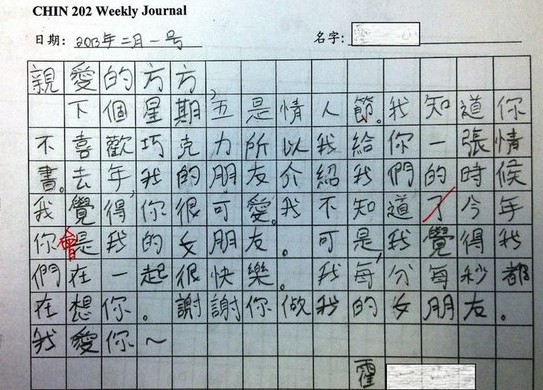 CHIN 202 Weekly Journal
日期: 2013年二月一号 名字:
親愛的方方,
下個星期五是情人節。我知道你
不喜歡巧克力所以我給你一張情
書。去年,我的朋友介紹我們的時候
我覺得你很可愛。我不知道了今年
你會是我的女朋友。可是,我覺得我
們在一起很快樂。我每分每秒都
在想你。謝謝你做我的女朋友。
我愛你~
霍